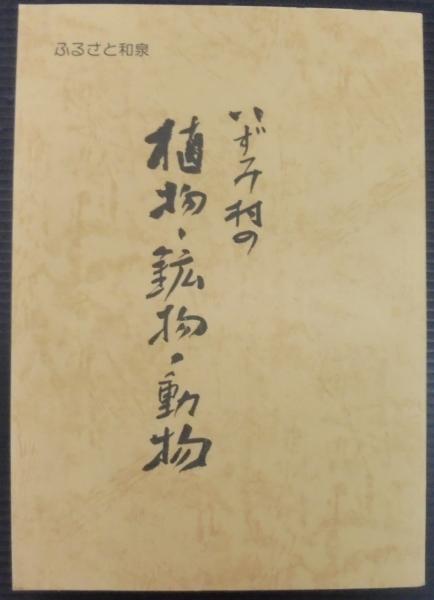 ふるさと和泉
いずみ村の
植物・鉱物・動物